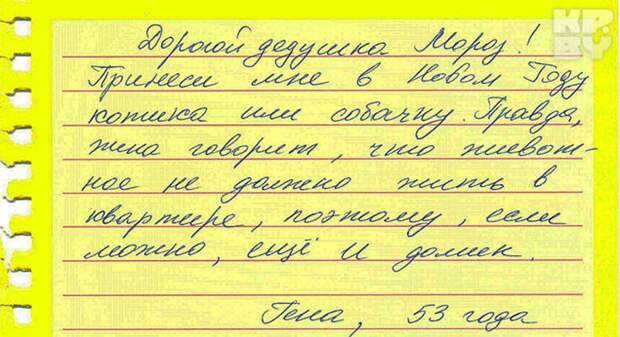 KP.
BY
Дорогой дедушка Мороз!
Принеси мне в Новом Году
котика или собачку. Правда,
жена говорит, что живот-
ное не должно жить в
квартире, поэтому, если
можно, ещё и домик.
Гена, 53 года